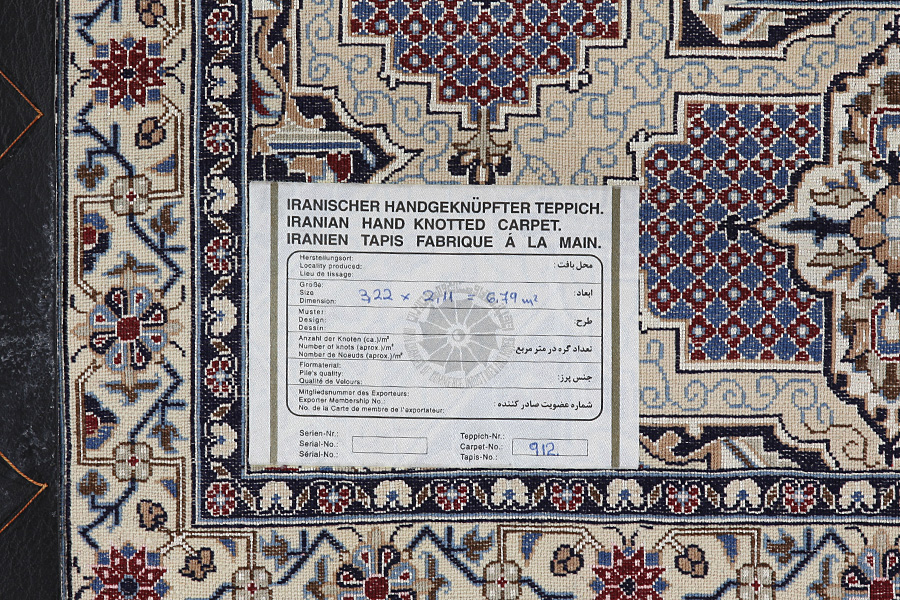 IRANISCHER HANDGEKNÜPFTER TEPPICH.
IRANIAN HAND KNOTTED CARPET.
IRANIEN TAPIS FABRIQUE Á LA MAIN.
Herstellungsort:
Locality produced:
Lieu de tissage:
محل بافت:
Große:
Size
Dimension:
3,22 x 2,11 = 6.79 m²
ابعاد:
Muster:
Design:
Dessin:
طرح:
Anzahl der Knoten (ca.)/m²
Number of knots (aprox.)/m²
Nomber de Noeuds (aprox.)/m²
تعداد گره در متر مربع:
Flormaterial:
Pile's quality:
Qualité de Velours:
جنس پرز:
Mitgliedsnummer des Exporteurs:
Exporter Membership No.:
No. de la Carte de membre de l'exportateur:
شماره عضویت صادر کننده:
Serien-Nr.:
Serial-No.:
Sérial-No.:
Teppich-Nr.:
Carpet-No.:
Tapis-No.:
912.